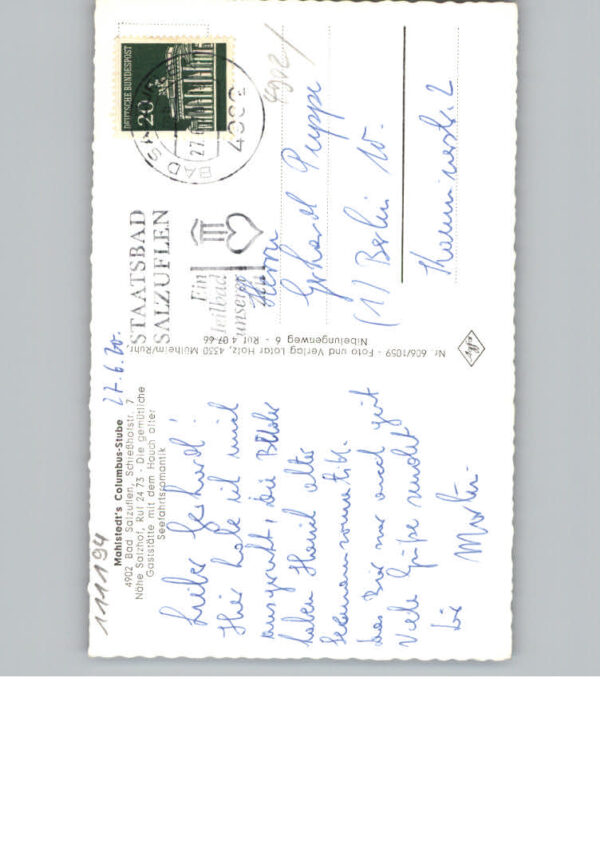 111194
Mahlstedt's Columbus-Stube
4902 Bad Salzuflen, Schießhofstr. 7
Nähe Salzhof, Ruf 24 73 - Die gemütliche
Gaststätte mit dem Hauch alter
Seefahrtsromantik
27.6.70.
Lieber Gerhard!
Hier habe ich mich
ausgeruht, die Bilder
haben Hauch alter
Seemannsromantik.
Das Bier war auch gut
Viele Grüße sendet
Dir
Martin.
Nr. 606/1059 - Foto und Verlag Lotar Holz, 4330 Mülheim/Ruhr,
Nibelungenweg 6 - Ruf 4 07-66
STAATSBAD
SALZUFLEN
Ein
Heilbad
unserer
DEUTSCHE BUNDESPOST
20
BAD SA
27.
4902
4902
Herrn
Gerhard Puppe
(1) Berlin